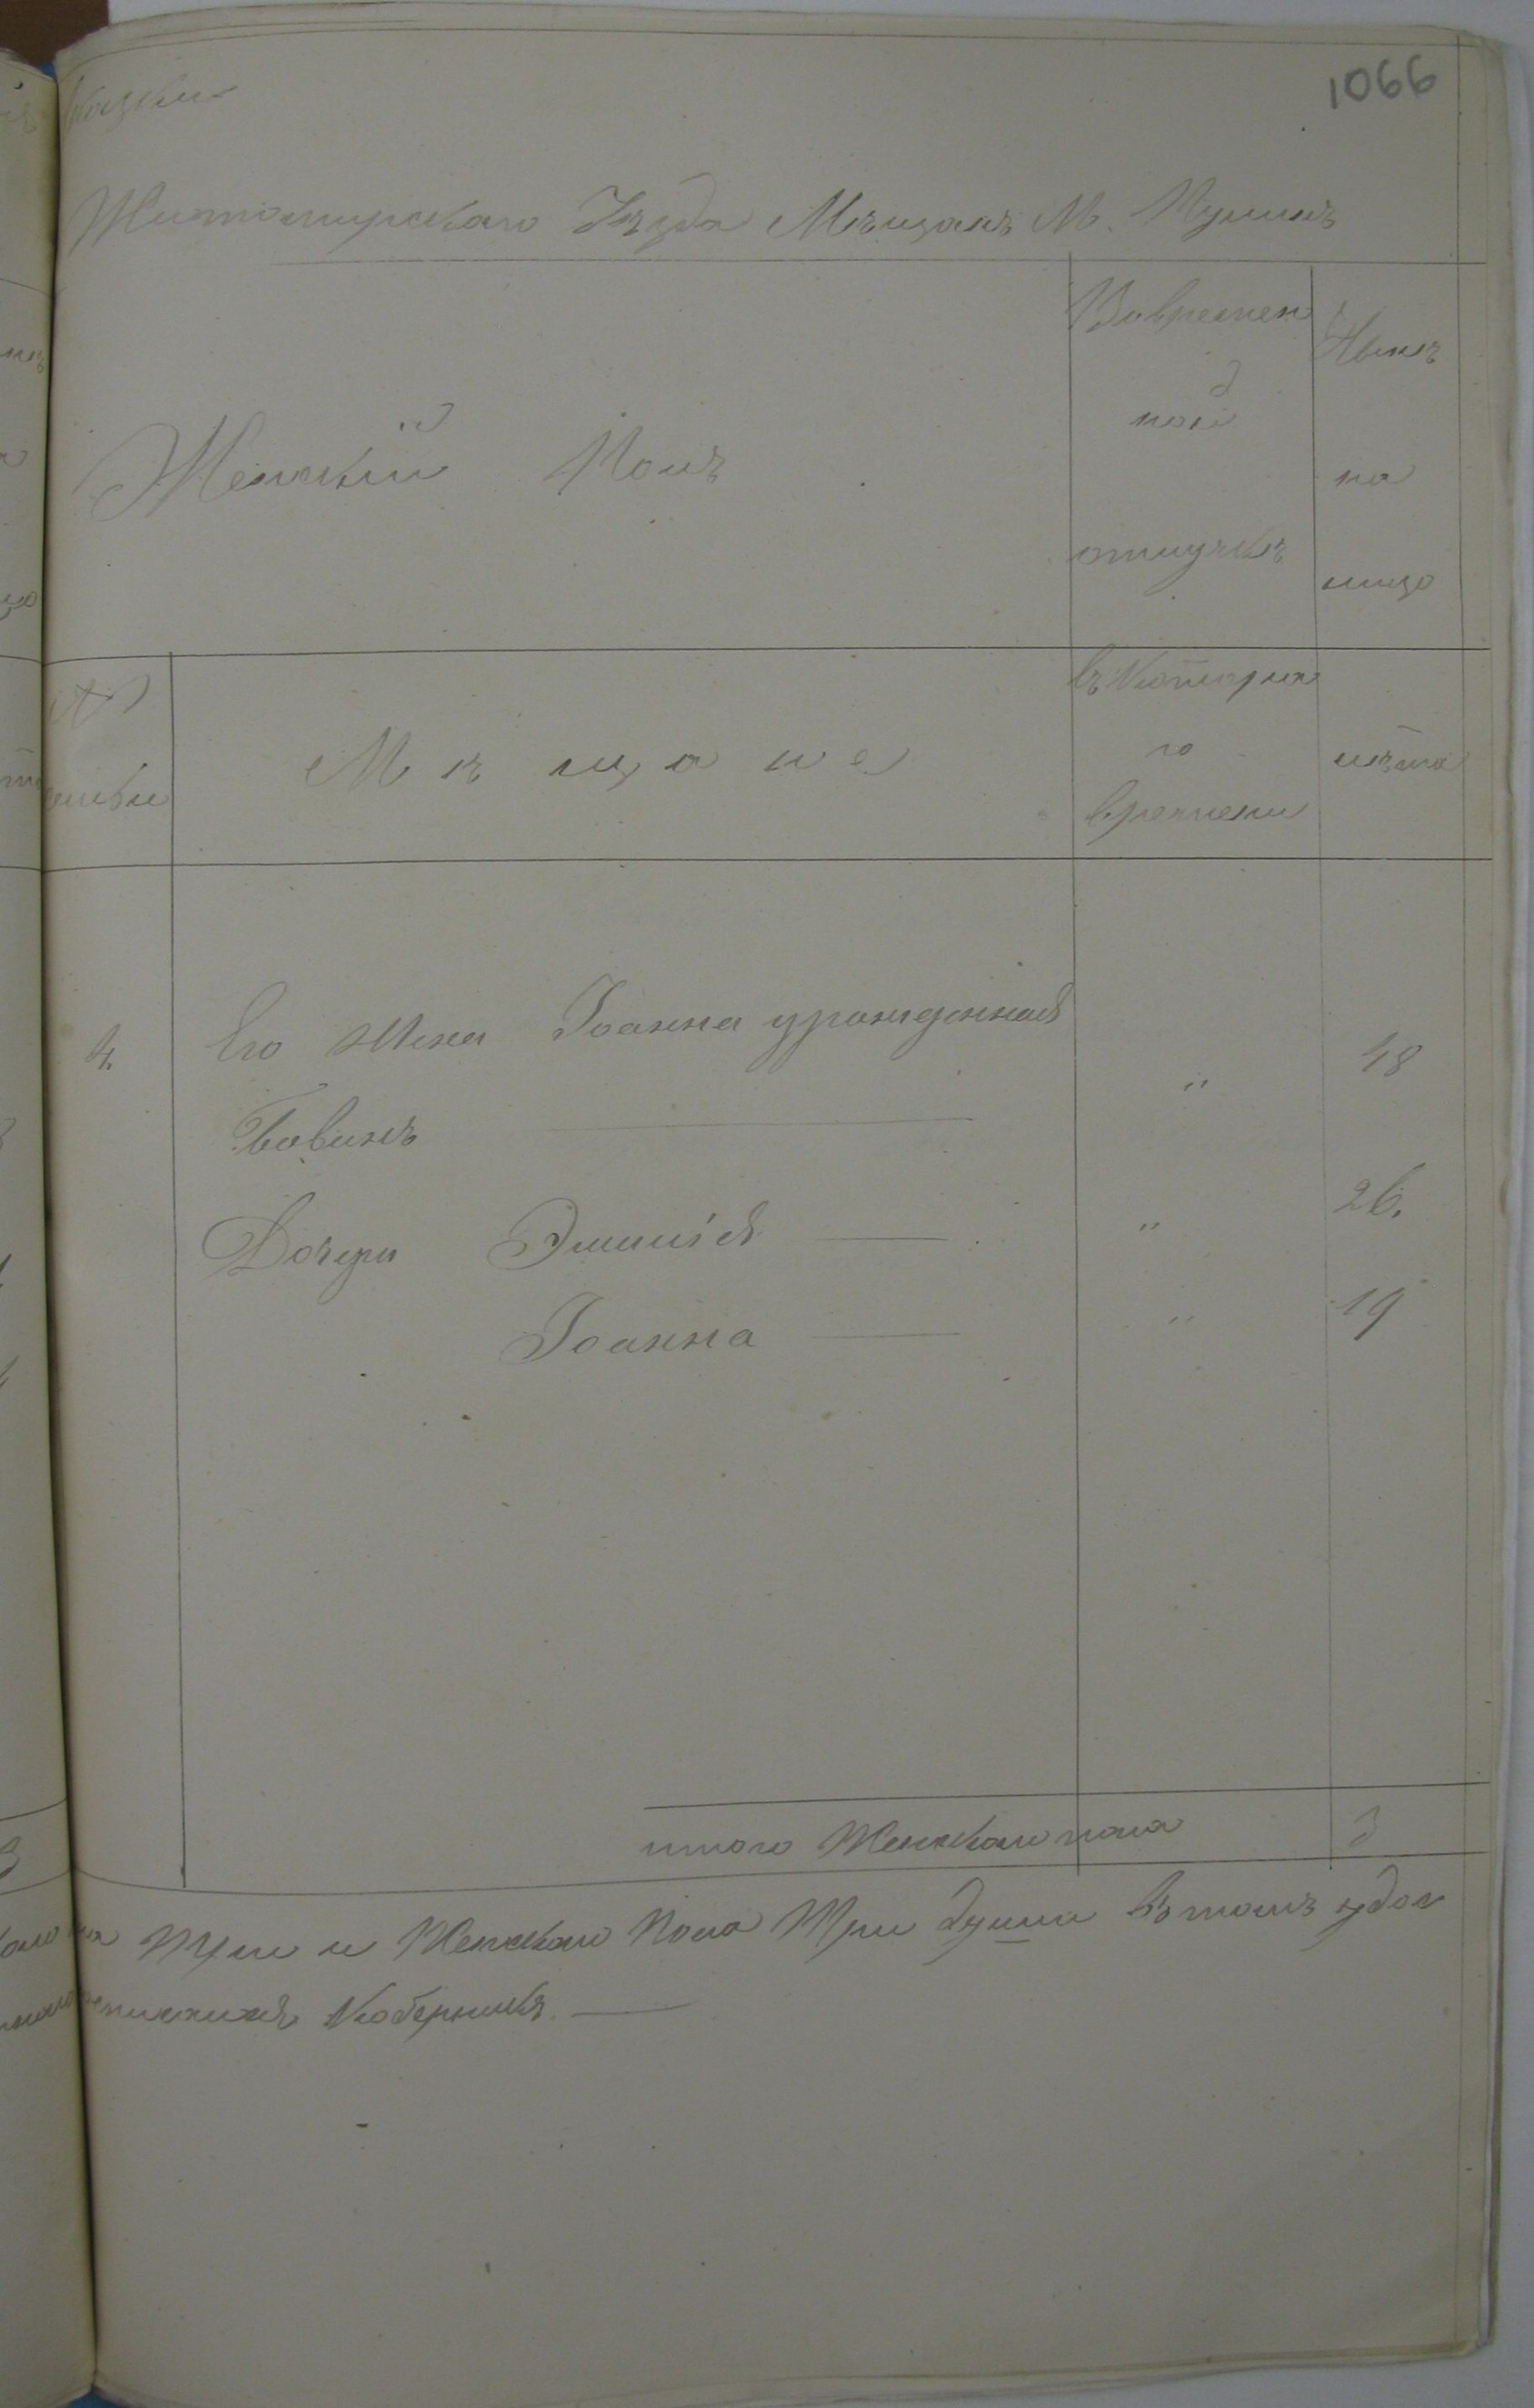 1066
Житомирскаго Уѣзда Мѣщанъ М. Пулинъ
Женскій Полъ
Вовремен
ной
отлучкѣ
Нынѣ
на
лицо
№
семьи
Мѣщане
съ Котораго
времени
лѣта
4.
Его Жена Іоанна урожденная
Бовинъ
„
48
Дочери Эмилія
„
26.
Іоанна
„
19
итого Женскаго пола
3
Три и Женскаго Пола Три души Вътомъ удос
Коберникъ